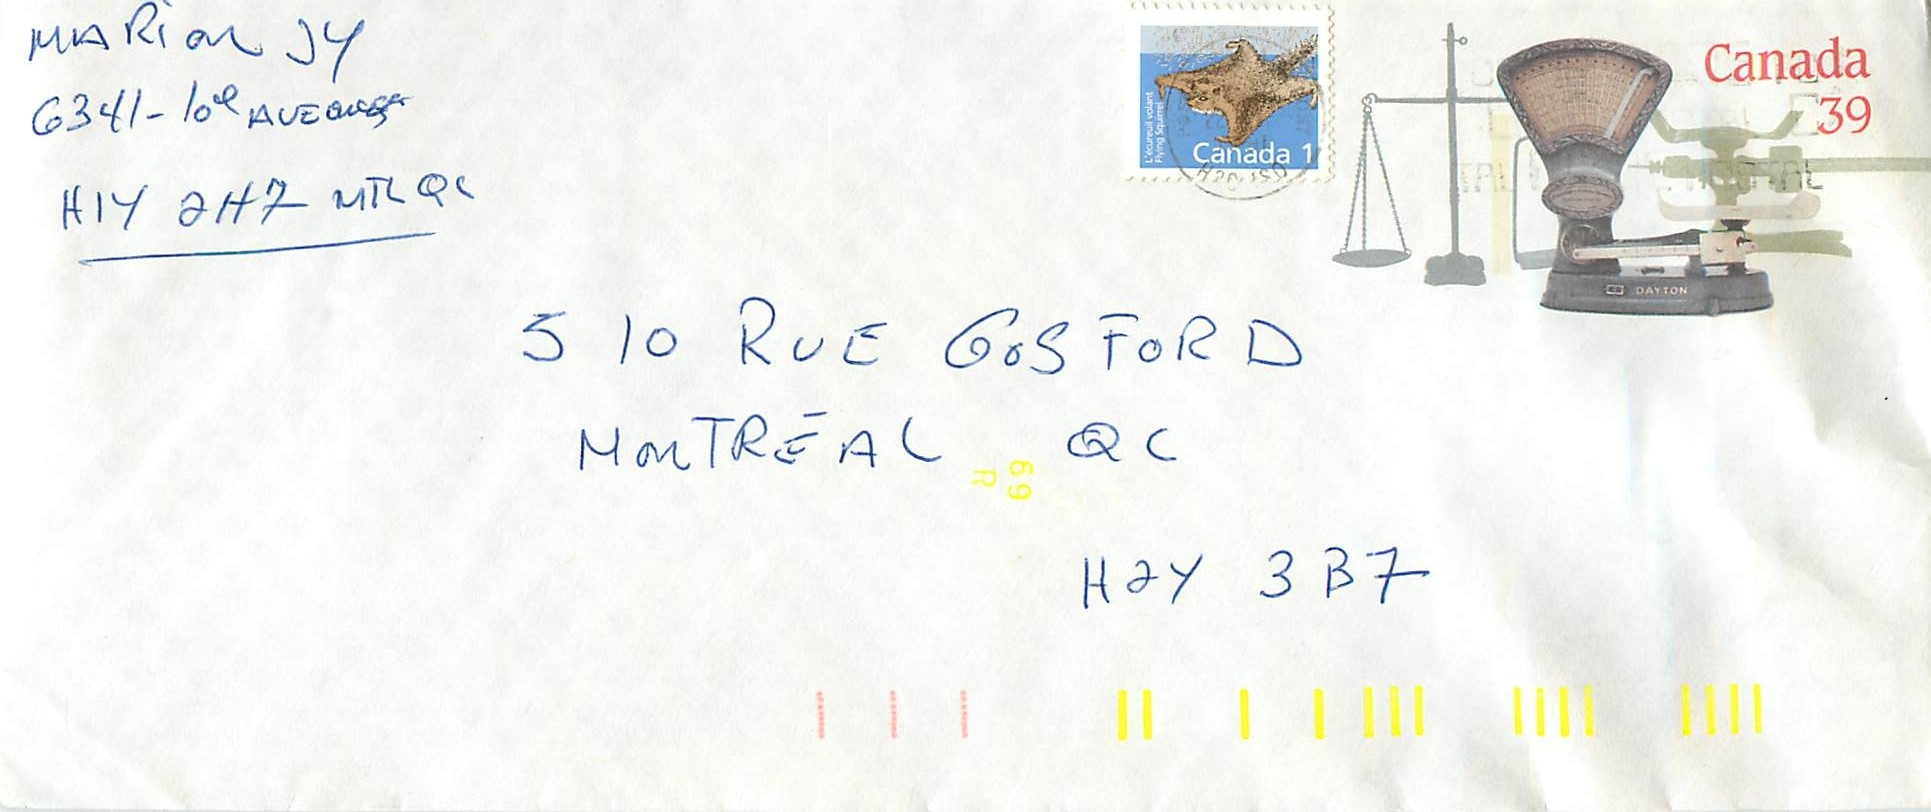 MARION JY
6341-10e AVE
H1Y 2H7 MTL QC
L'écureuil volant
Flying Squirrel
Canada 1
Canada
39
DAYTON
510 RUE GOSFORD
MONTRÉAL QC
69
R
H2Y 3B7